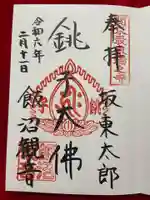 奉拝
坂東太郎
銚子大佛
飯沼観音
令和六年
二月十一日